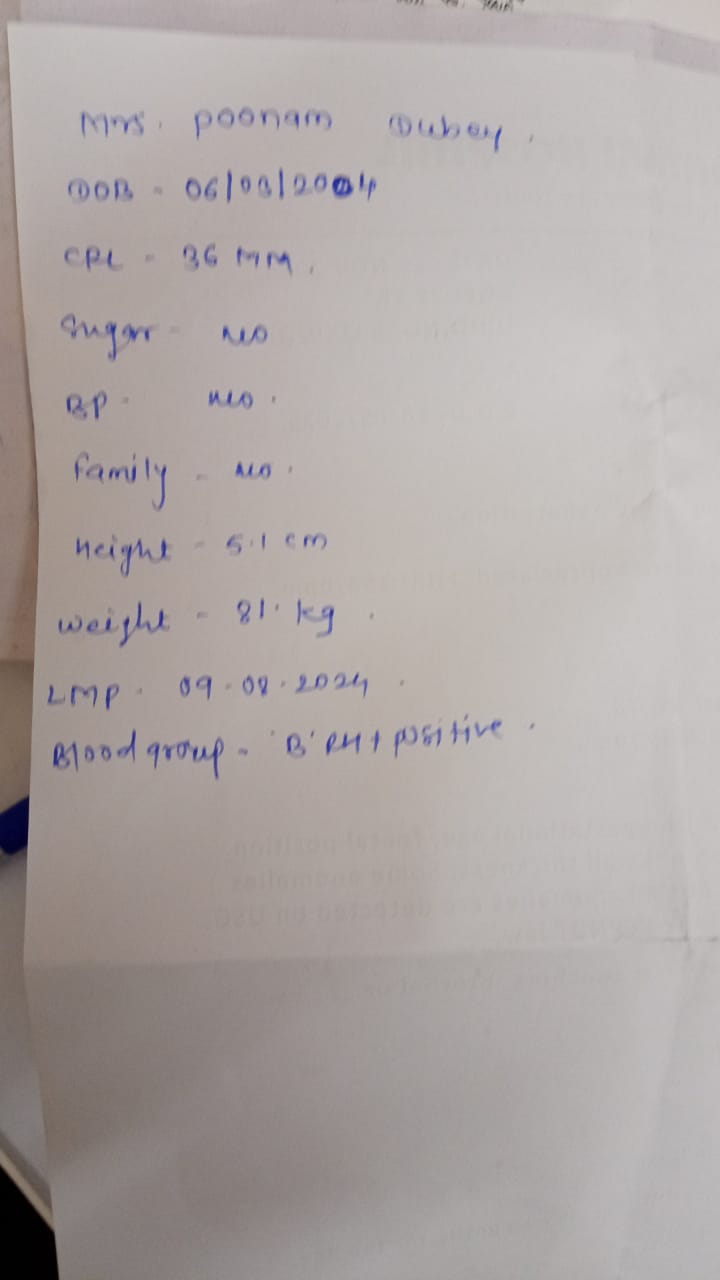 Mrs. poonam Dubey.
DOB - 06/03/2004
CRL - 36 MM.
Sugar - NO
BP - NO.
Family - NO.
Height - 5.1 cm
weight - 81. kg.
LMP. 09.08.2024.
Blood group - 'B' RH + positive.